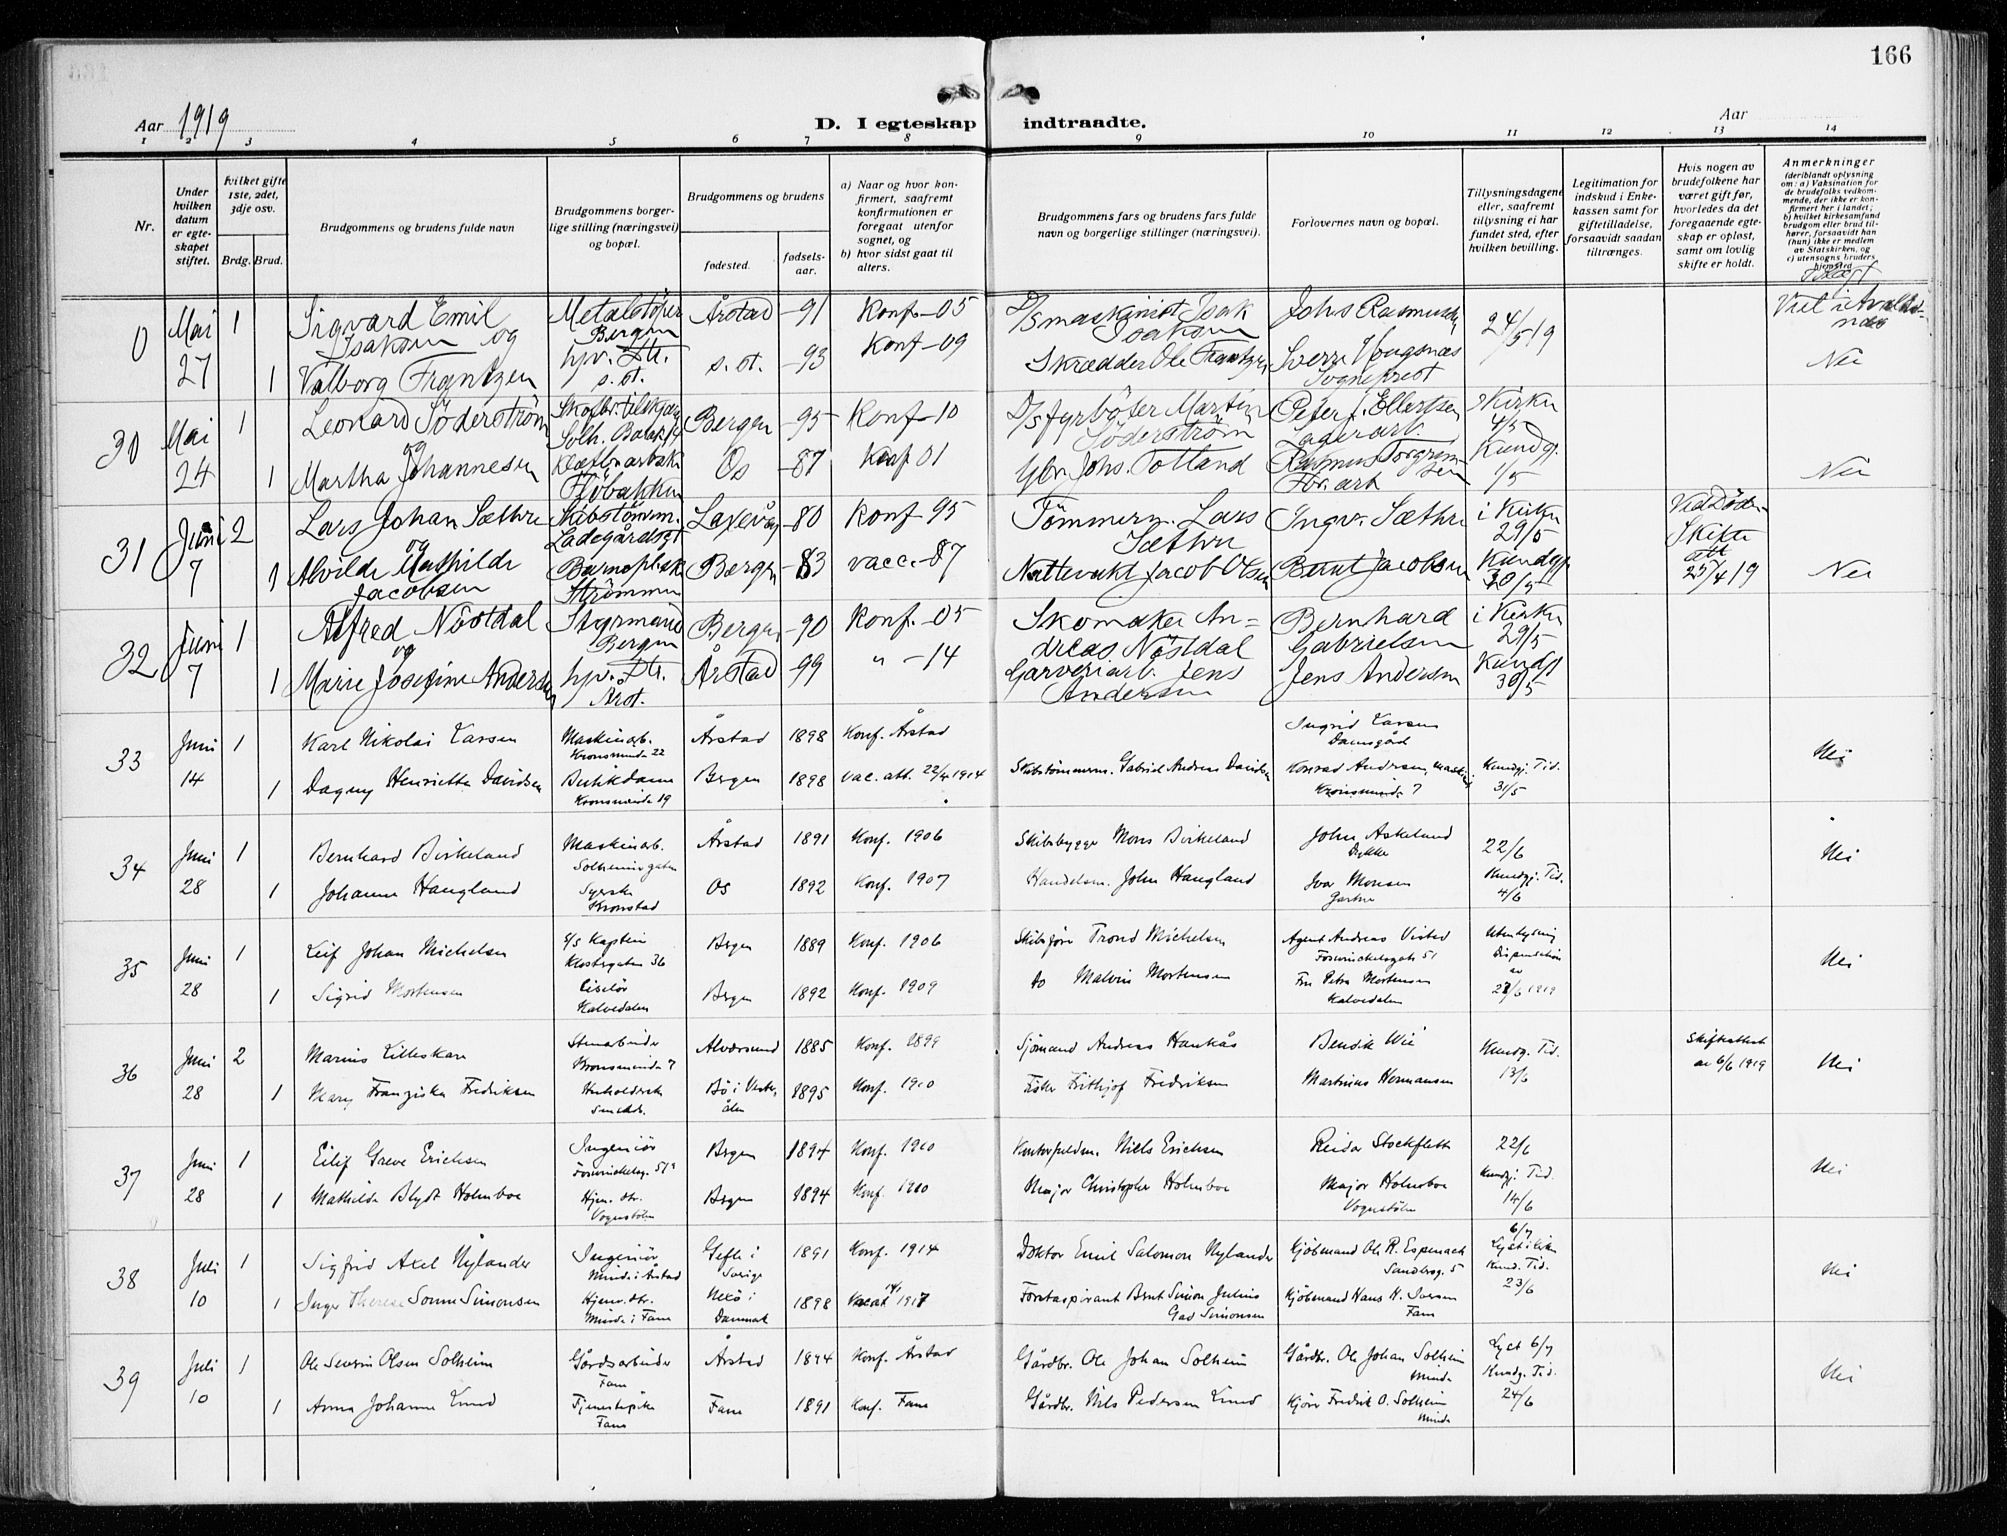 166
Aar 1919
D. I egteskap indtraadte.
Aar
1 2 3 4 5 6 7 8 9 10 11 12 13 14
Nr.
Under hvilken datum er egteskapet stiftet.
Hvilket gifte 1ste, 2det, 3dje osv.
Brdg. Brud.
Brudgommens og brudens fulde navn
Brudgommens borgerlige stilling (næringsvei) og bopæl.
Brudgommens og brudens
fødested. fødselsaar.
a) Naar og hvor konfirmert, saafremt konfirmationen er foregaat utenfor sognet, og
b) hvor sidst gaat til alters.
Brudgommens fars og brudens fars fulde navn og borgerlige stillinger (næringsvei).
Forlovernes navn og bopæl.
Tillysningsdagene eller, saafremt tillysning ei har fundet sted, efter hvilken bevilling.
Legitimation for indskud i Enkekassen samt for giftetilladelse, forsaavidt saadan tiltrænges.
Hvis nogen av brudefolkene har været gift før, hvorledes da det foregaaende egteskap er opløst, samt om lovlig skifte er holdt.
Anmerkninger
(deriblandt oplysning om: a) Vaksination for de brudefolks vedkommende, der ikke er konfirmert her i landet; b) hvilket kirkesamfund brudgom eller brud tilhører, forsaavidt han (hun) ikke er medlem av Statskirken, og c) utensogns bruders hjemsted
0 Mai 1 Sigvard Emil Metalstøper Årstad -91 Konf.-05 D/s maskinist Isak Johs Rasmussen 24/5 19 Viet i
Isaksen og Bergen Isaksen
27 1 Valborg Frantzen hjv. Dtr. s. st. -93 Konf -09 Skrædder Ole Frantzen Sverre Nei
s. st. Sogneprest
30 Mai 1 Leonard Söderström Bergen -95 Konf -10 D/s fyrböter Martin Peter J. Ellertsen i Kirken 4/5
og Solh. Söderström Lagerarb.
24 1 Martha Johannesen Os -87 Konf 01 Gbr. Johs. Totland Rasmus Torgrimsen Kundg. 1/5 Nei
Fbr. arb
31 Juni 2 Lars Johan Sæthre Skibstömerm. Laxevåg -80 Konf -95 Tömmerm. Lars Ingv. Sæthre i Kirken 29/5 Ved Døden
og Ladegårdsgt Sæthre Skifte att
7 1 Alvilde Mathilde Bergen -83 vacc.-87 Nattevakt Jacob Olsen Bernt Jacobsen Kundg. 30/5 25/4 19 Nei
Jacobsen Strömmen
32 Juni 1 Alfred Nöstdal Styrmand Bergen -90 Konf.-05 Skomaker An- Bernhard i Kirken 29/5
og Bergen dreas Nöstdal Gabrielsen
7 1 Marie Josefine Andersen hjv. Dtr. Årstad -99 " -14 Garveriarb. Jens Jens Andersen Kundg. 30/5
Årst. Andersen
33 Juni 1 Karl Nikolai Larsen Maskinarb. Årstad 1898 Konf. Årstad Ingrid Larsen
Kronsminde 22 Damsgård
14 1 Dagny Henriette Davidsen Butikdame Bergen 1898 vac. att. 22/4 1914 Skibstömmerm. Gabriel Andreas Davidsen Konrad Andersen, Kundgj. Tid. Nei
Kronsminde 19 Kronsminde 7 31/5
34 Juni 1 Bernhard Birkeland Maskinarb. Årstad 1891 Konf. 1906 Skibsbygger Mons Birkeland John Askeland 22/6 Nei
Solheimsgaten Dykker
28 1 Johanna Haugland Syerske Os 1892 Konf. 1907 Handelsm. John Haugland Ivar Monsen Kundgj. Tid.
Kronstad Gartner 4/6
35 Juni 1 Leif Johan Michelsen Kaptein Bergen 1889 Konf. 1906 Skibsføre Trond Michelsen Agent Andreas Visted Utenlysning Nei
Klostergaten 36 Fosswinckelsgate 51 Dispensation av
28 1 Sigrid Mortensen Bergen 1892 Konf. 1909 do Malvin Mortensen Fru Petra Mortensen 27/6 1919
Kalvedalen Kalvedalen
36 Juni 2 Marius Lilleskare Stenarbeider Alversund 1885 Konf. 1899 Sjømand Andreas Haukås Bendik Wie Kundg. Tid. Skifteattest
Kronsminde 7 13/6 av 6/6 1919 Nei
28 1 Mary Franziska Fredriksen Husholderske Bö i Vester- 1895 Konf. 1910 Fisker Fritjof Fredriksen Martinus Hermansen
smstds. ålen
37 Juni 1 Eilif Greve Erichsen Ingeniör Bergen 1894 Konf. 1910 Kontorfuldm. Niels Erichsen Reidar Stockfleth 22/6 Nei
Fosswinckelsg. 51a Kundgj. Tid.
28 1 Mathilde Blydt Holmboe Hjem. dtr. Bergen 1894 Konf. 1910 Major Christopher Holmboe Major Holmboe 14/6
Vognstölen Vognstölen
38 Juli 1 Sigfrid Axel Nylander Ingeniör Gefle i 1891 Konf. 1914 Doktor Emil Salomon Nylander Kjöbmand Ole R. Espenack 6/7 Lyst i Kirken
Minde i Årstad Sverige Sandbrog. 5 Kund. Tid. Nei
10 1 Inger Therese Sonne Simonsen Hjemv. dtr. Nexö i 1898 1917 Forstaspirant Bernt Simon Julius Kjöbmand Hans H. Iversen 23/6
Minde i Fane Danmark Gad Simonsen Fane
39 Juli 1 Ole Severin Olsen Solheim Gårdsarbeider Årstad 1894 Konf. Årstad Gårdbr. Ole Johan Solheim Gårdbr. Ole Johan Solheim Lyst 6/7 Nei
Fane Minde Kundg. Tid.
10 1 Anna Johanne Lund Tjenestepike Fane 1891 Konf. Fane Gårdbr. Nils Pedersen Lund Kjörer Fredrik O. Solheim 24/6
Fane Minde